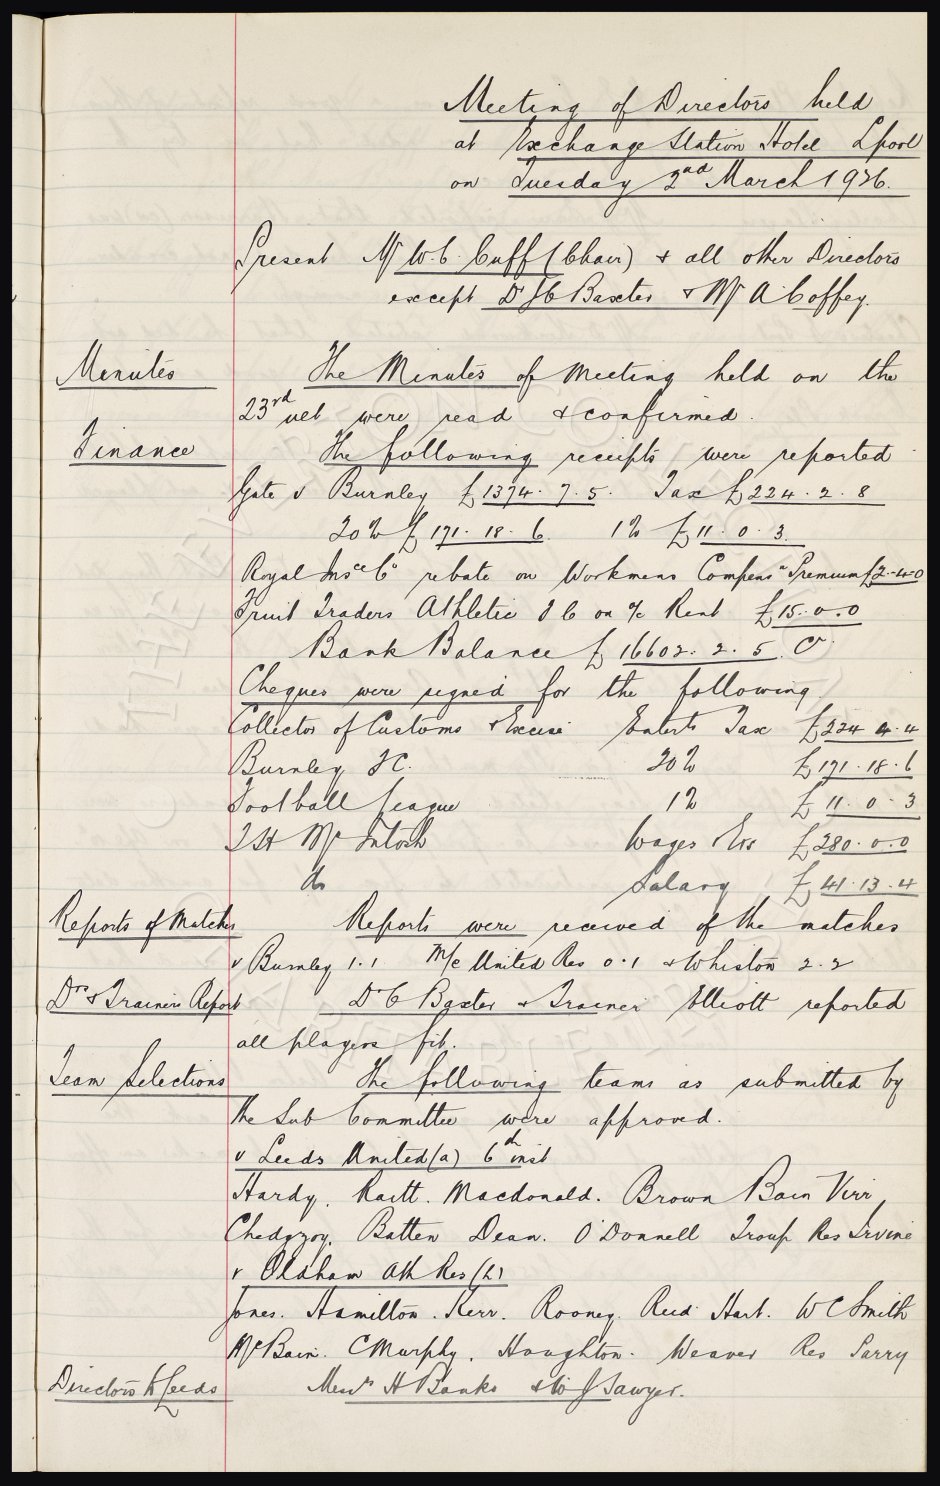 Meeting of Directors held
at Exchange Station Hotel Lpool
on Tuesday 2nd March 1926.
Present Mr W.C. Cuff (Chair) & all other Directors
except Dr J C Baxter & Mr A Coffey.
Minutes The Minutes of Meeting held on the
23rd ult were read & confirmed.
Finance The following receipts were reported
Gate v Burnley £1374.7.5. Tax £224.2.8
20% £171.18.6. 1% £11.0.3.
Royal Insce Co rebate on Workmens Compensn Premium £2-4-0
Fruit Traders Athletic F C on a/c Rent £15.0.0
Bank Balance £16602.2.5 Cr
Cheques were signed for the following.
Collector of Customs & Excise Enterts Tax £224 4.4
Burnley F C. 20% £171.18.6
Football League 1% £11.0.3
T H McIntosh Wages &c £280.0.0
do Salary £41.13.4
Reports of Matches Reports were received of the matches
v Burnley 1.1 M/c United Res 0.1 & Whiston 2.2
Drs & Trainers Report Dr C Baxter & Trainer Elliott reported
all players fit.
Team Selections The following teams as submitted by
the Sub Committee were approved.
v Leeds United (a) 6th inst
Hardy, Raitt. Macdonald. Brown Bain Virr,
Chedgzoy. Batten Dean. O'Donnell Troup Res Irvine
v Oldham Ath Res (h)
Jones. Hamilton. Kerr. Rooney. Reid Hart. W C Smith
McBain. C Murphy. Houghton. Weaver Res Parry
Directors to Leeds Messrs H Banks & W J Sawyer.